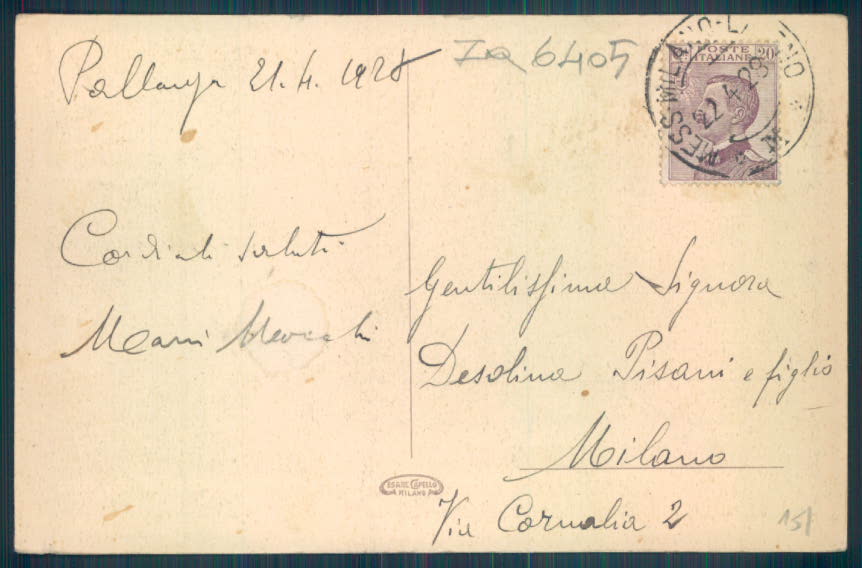 Pallanza 21.4.1928
Cordiali saluti
Za 6405
POSTE ITALIANE 20
MESS. MILANO-L
22.4.28
Gentilissima Signora
Desolina Pisani e figlio
Milano
Via Cornalia 2
CESARE CAPELLO
MILANO
15/